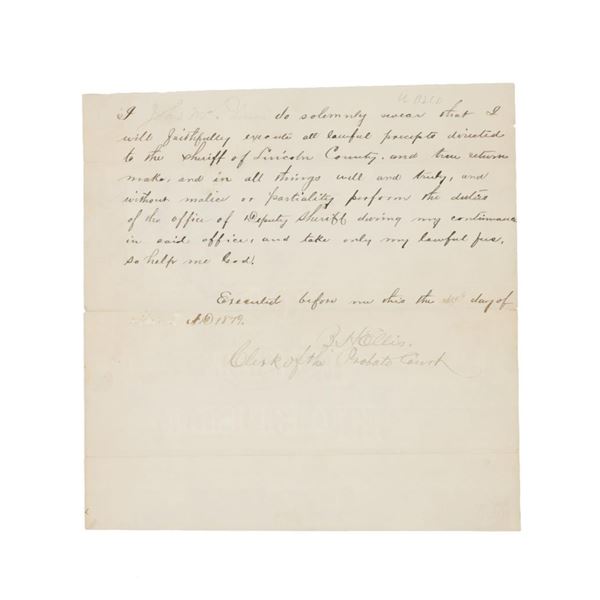 I John do solemnly swear that I
will faithfully execute all lawful precepts directed
to the Sheriff of Lincoln County, and true returns
make, and in all things well and truly, and
without malice or partiality perform the duties
of the office of Deputy Sheriff during my continuance
in said office, and take only my lawful fees,
so help me God!
Executed before me this the day of
AD 1879.
B H Ellis.
Clerk of the Probate Court